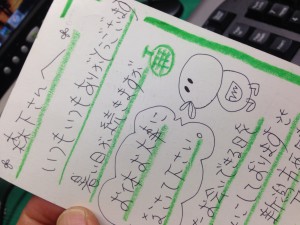 森下さんへ
いつもいつもありがとうござい
暑い日が続きますが
お体お大事に
なさって下さい。
お会いできる日を
にしております
新潟市